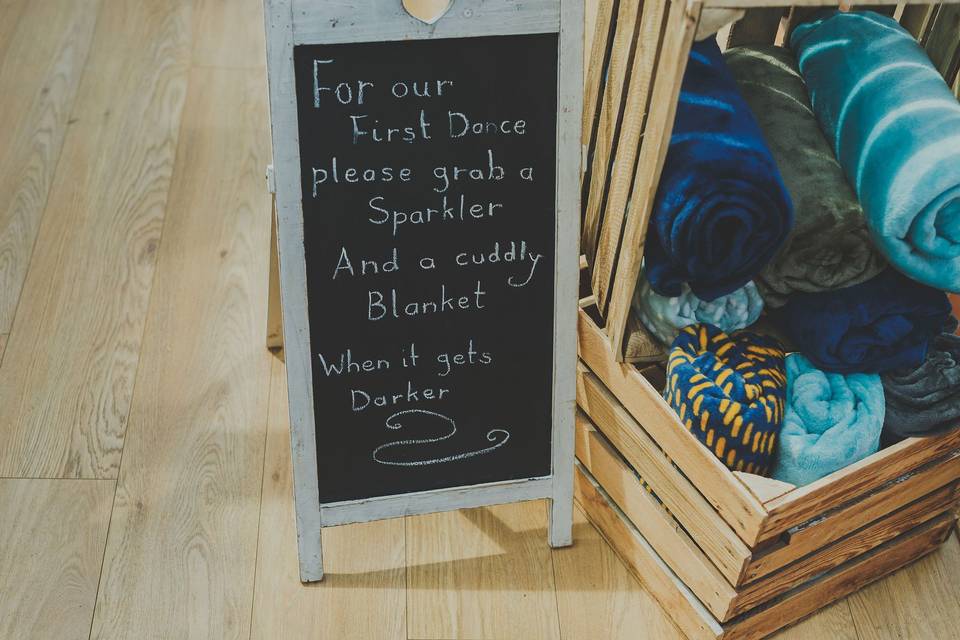 For our
First Dance
please grab a
Sparkler
And a cuddly
Blanket
When it gets
Darker